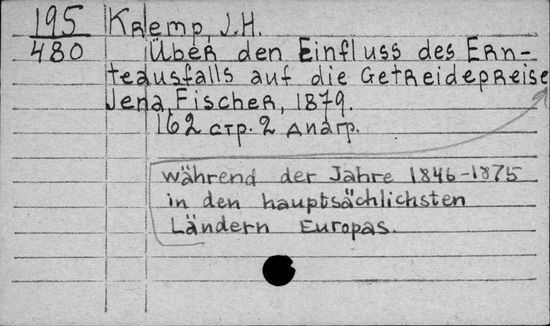 195 Kremp, J.H.
480 Über den Einfluss des Ern-
teausfalls auf die Getreidepreise
Jena, Fischer, 1879.
162 стр. 2 диагр.
während der Jahre 1846-1875
in den hauptsächlichsten
Ländern Europas.